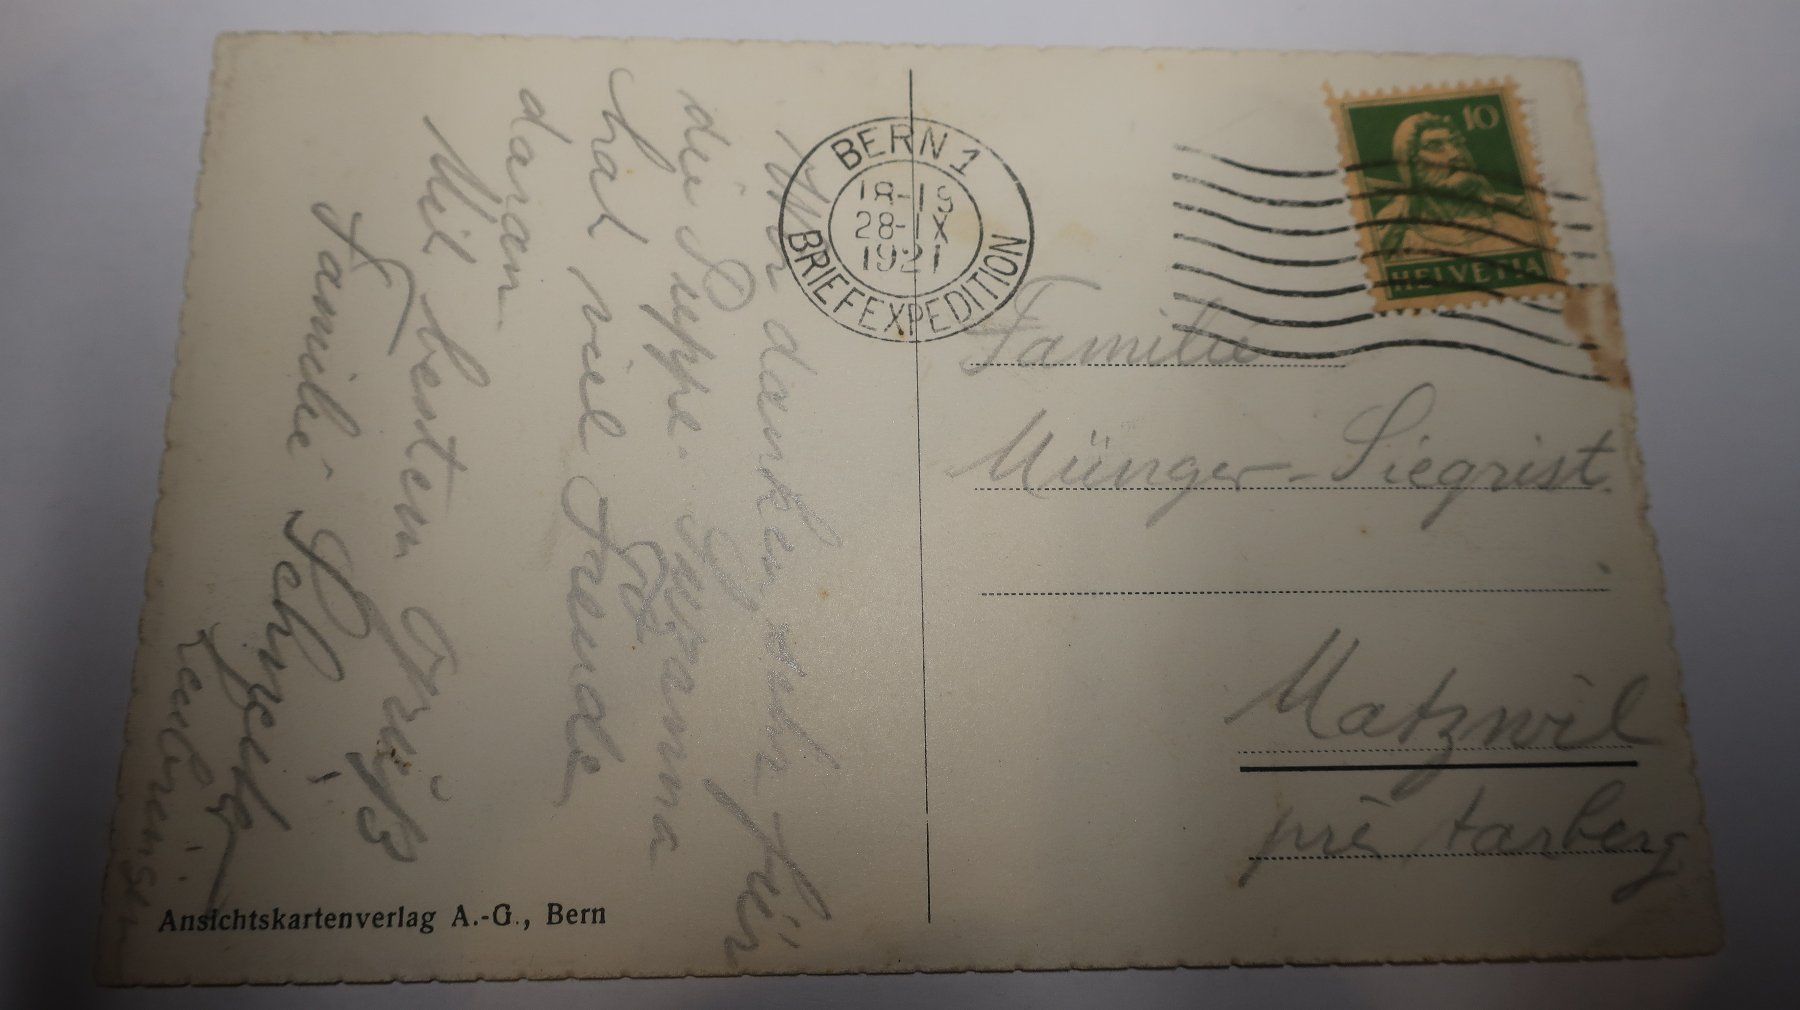 Wir danken sehr für
die Puppe. Susanna
hat viel Freude
daran.
Mit besten Grüß
Familie
Ansichtskartenverlag A.-G., Bern
BERN 1
18-1
28-IX
1921
BRIEFEXPEDITION
10
HELVETIA
Familie
Münger-Siegrist.
Matzwil
près Aarberg